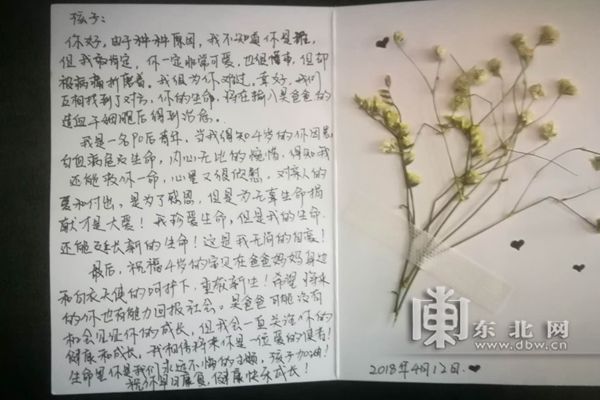 孩子:
你好,由于种种原因,我不知道你是谁,
但我敢肯定,你一定非常可爱,也很懂事,但却
被病痛折磨着。我很为你难过,幸好,我们
互相找到了对方,你的生命,将在输入吴爸爸的
造血干细胞后得到治疗。
我是一名90后青年,当我得知4岁的你因患
白血病危及生命,内心无比的惋惜,得知我
还能救你一命,心里又很欣慰,对亲人的
爱和付出,是为了感恩,但是为无辜生命捐
献才是大爱!我珍爱生命,但是我的生命
还能延长新的生命!这是我无尚的自豪!
最后,祝福4岁的宝贝在爸爸妈妈身边
和白衣天使的呵护下,重获新生!希望将来
的你也有能力回报社会。吴爸爸可能没有
机会见证你的成长,但我会一直关注你的
健康和成长,我相信将来你是一位爱的使者!
生命里你是我们永远不悔的主题,孩子加油!
祝你早日康复,健康快乐成长!
2018年4月12日.
东北网
www.dbw.cn